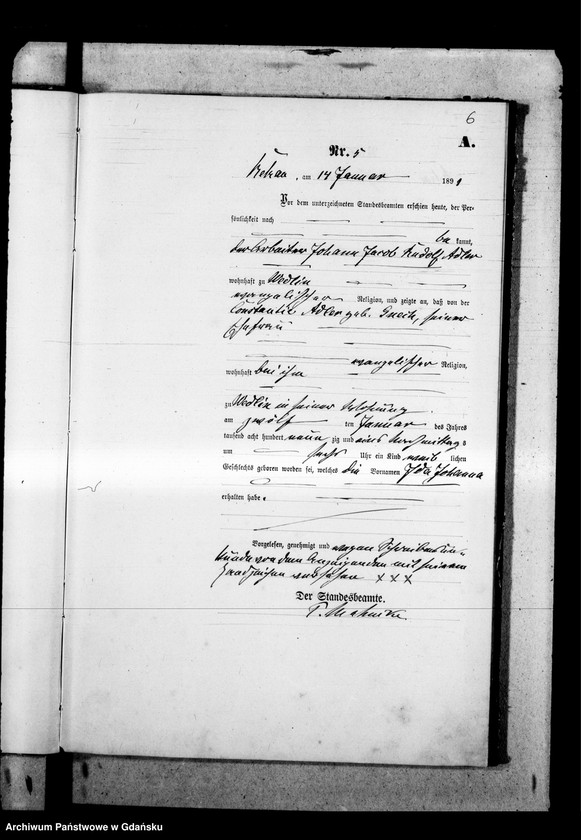 6
A.
Nr. 5
am 14 Januar 1891
Vor dem unterzeichneten Standesbeamten erschien heute, der Per-
sönlichkeit nach
be kannt,
der Arbeiter Johann Jacob Rudolf Adler
wohnhaft zu Wedlin
evangelischer Religion, und zeigte an, daß von der
Constantie Adler geb. seiner
Ehefrau
evangelischer Religion,
wohnhaft bei ihm
zu Wedlin in seiner Wohnung
am zwölf ten Januar des Jahres
tausend acht hundert neun zig und eins Vormittags
um sechs Uhr ein Kind weib lichen
Geschlechts geboren worden sei, welches die Vornamen Ida Johanna
erhalten habe.
Vorgelesen, genehmigt und wegen Schreibensun-
kunde von dem Anzeigenden mit seinem
Handzeichen versehen XXX
Der Standesbeamte.
Archiwum Państwowe w Gdańsku